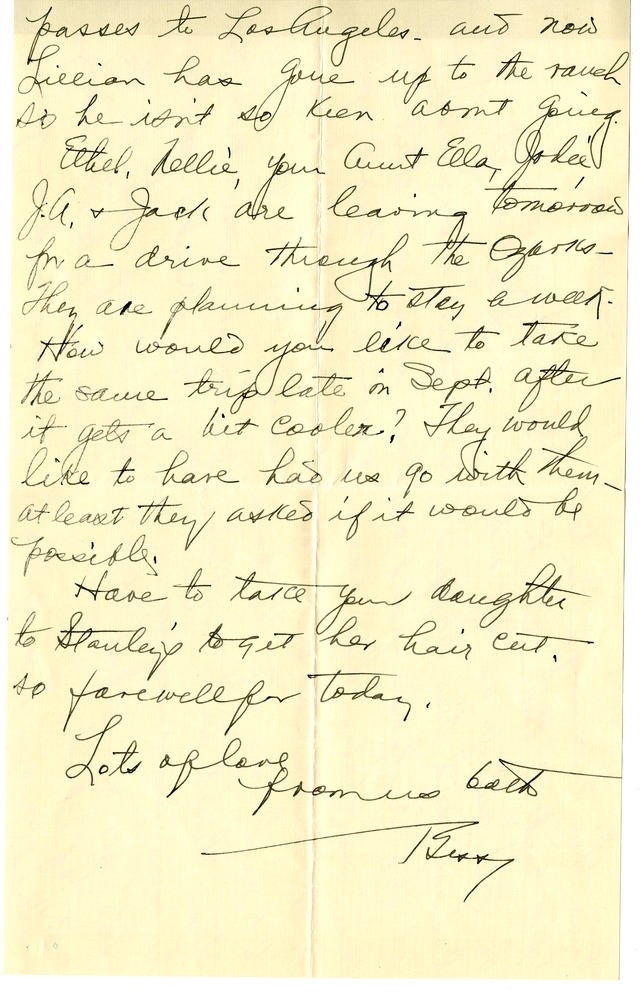 passes to Los Angeles - and now
Lillian has gone up to the ranch
so he isn't so keen about going.
Ethel, Nellie, your Aunt Ella, Jodie
J.A, & Jack are leaving tomorrow
for a drive through the Ozarks -
They are planning to stay a week.
How would you like to take
the same trip late in Sept. after
it gets a bit cooler? They would
like to have had us go with them -
at least they asked if it would be
possible.
Have to take your daughter
to Stanley's to get her hair cut.
so farewell for today.
Lots of love
from us both
Bess